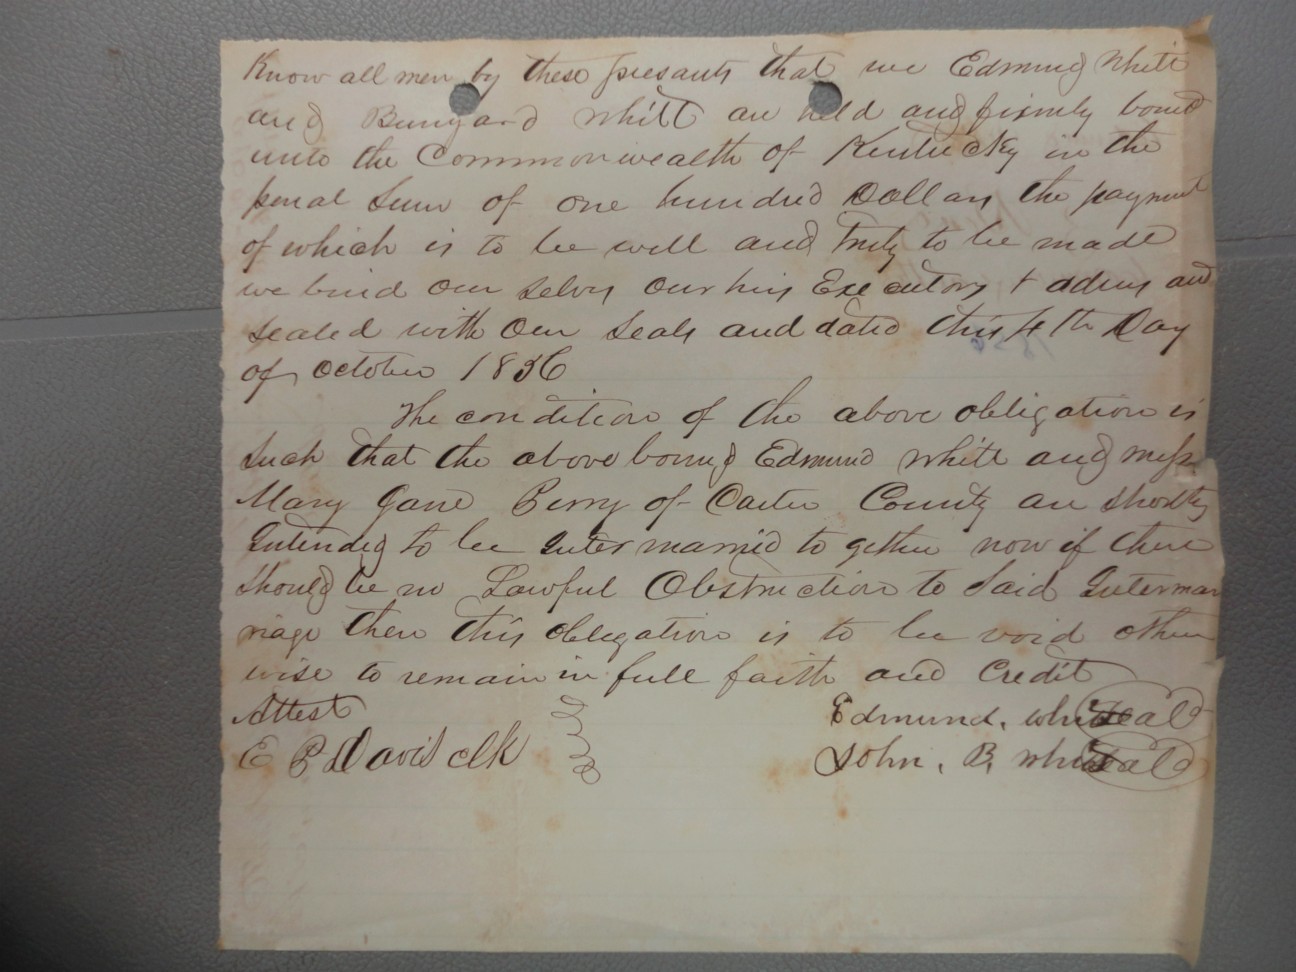 Know all men by these presants that we Edmund Whitt
and Bunyard Whitt are held and firmly bound
unto the Commonwealth of Kentucky in the
penal Sum of one hundred Dollars the payment
of which is to be well and truly to be made
we bind our selvs our hirs Executors + admrs and
sealed with our Seals and dated this 4th Day
of October 1856
The condition of the above obligation is
Such that the above bound Edmund Whitt and miss
Mary Jane Perry of Carter County are shortly
Intended to be Intermarried to gether now if there
Should be no Lawful Obstruction to Said Intermar
riage then this obligation is to be void other
wise to remain in full faith and Credit
Attest
Edmund. Whitt Seal
E B Davis clk
John. B. Whitt Seal